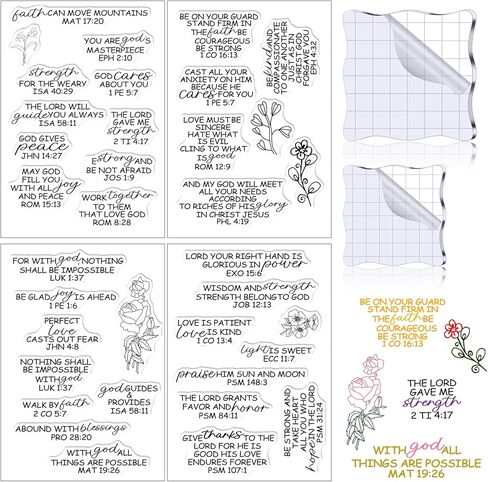 faith CAN MOVE MOUNTAINS
MAT 17:20
YOU ARE god's
MASTERPIECE
EPH 2:10
strength
FOR THE WEARY
ISA 40:29
GOD cares
ABOUT YOU
1 PE 5:7
THE LORD WILL
guide YOU ALWAYS
ISA 58:11
THE LORD
GAVE ME
strength
2 TI 4:17
GOD GIVES
peace
JHN 14:27
E strong AND
BE NOT AFRAID
JOS 1:9
MAY GOD
FILL YOU
WITH ALL joy
AND PEACE
ROM 15:13
WORK together
TO THEM
THAT LOVE GOD
ROM 8:28
BE ON YOUR GUARD
STAND FIRM IN
THE faith BE
COURAGEOUS
BE STRONG
1 CO 16:13
BE kind AND
COMPASSIONATE
TO ONE ANOTHER
JUST AS IN
CHRIST GOD
FORGAVE YOU
EPH 4:32
CAST ALL YOUR
ANXIETY ON HIM
BECAUSE HE
cares FOR YOU
1 PE 5:7
LOVE MUST BE
SINCERE
HATE WHAT
IS EVIL
CLING TO WHAT
IS good
ROM 12:9
AND MY GOD WILL MEET
ALL YOUR NEEDS
ACCORDING
TO RICHES OF HIS glory
IN CHRIST JESUS
PHL 4:19
FOR WITH god NOTHING
SHALL BE IMPOSSIBLE
LUK 1:37
BE GLAD joy IS AHEAD
1 PE 1:6
PERFECT
love
CASTS OUT FEAR
JHN 4:8
NOTHING SHALL
BE IMPOSSIBLE
WITH god
LUK 1:37
god GUIDES &
PROVIDES
ISA 58:11
WALK BY faith
2 CO 5:7
ABOUND WITH blessings
PRO 28:20
WITH god ALL
THINGS ARE POSSIBLE
MAT 19:26
LORD YOUR RIGHT HAND IS
GLORIOUS IN power
EXO 15:6
WISDOM AND strength
STRENGTH BELONG TO GOD
JOB 12:13
LOVE IS PATIENT
love IS KIND
1 CO 13:4
light IS SWEET
ECC 11:7
praise HIM SUN AND MOON
PSM 148:3
THE LORD GRANTS
FAVOR AND honor
PSM 84:11
GIVE thanks TO THE
LORD FOR HE IS
GOOD HIS LOVE
ENDURES FOREVER
PSM 107:1
BE STRONG AND
TAKE HEART
ALL YOU WHO
hope IN THE LORD
PSM 31:24
BE ON YOUR GUARD
STAND FIRM IN
THE faith BE
COURAGEOUS
BE STRONG
1 CO 16:13
THE LORD
GAVE ME
strength
2 TI 4:17
WITH god ALL
THINGS ARE POSSIBLE
MAT 19:26